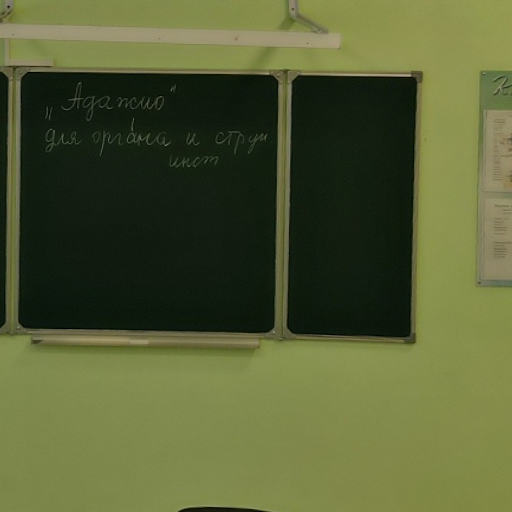 „Адажио"
для органа и струн
инст